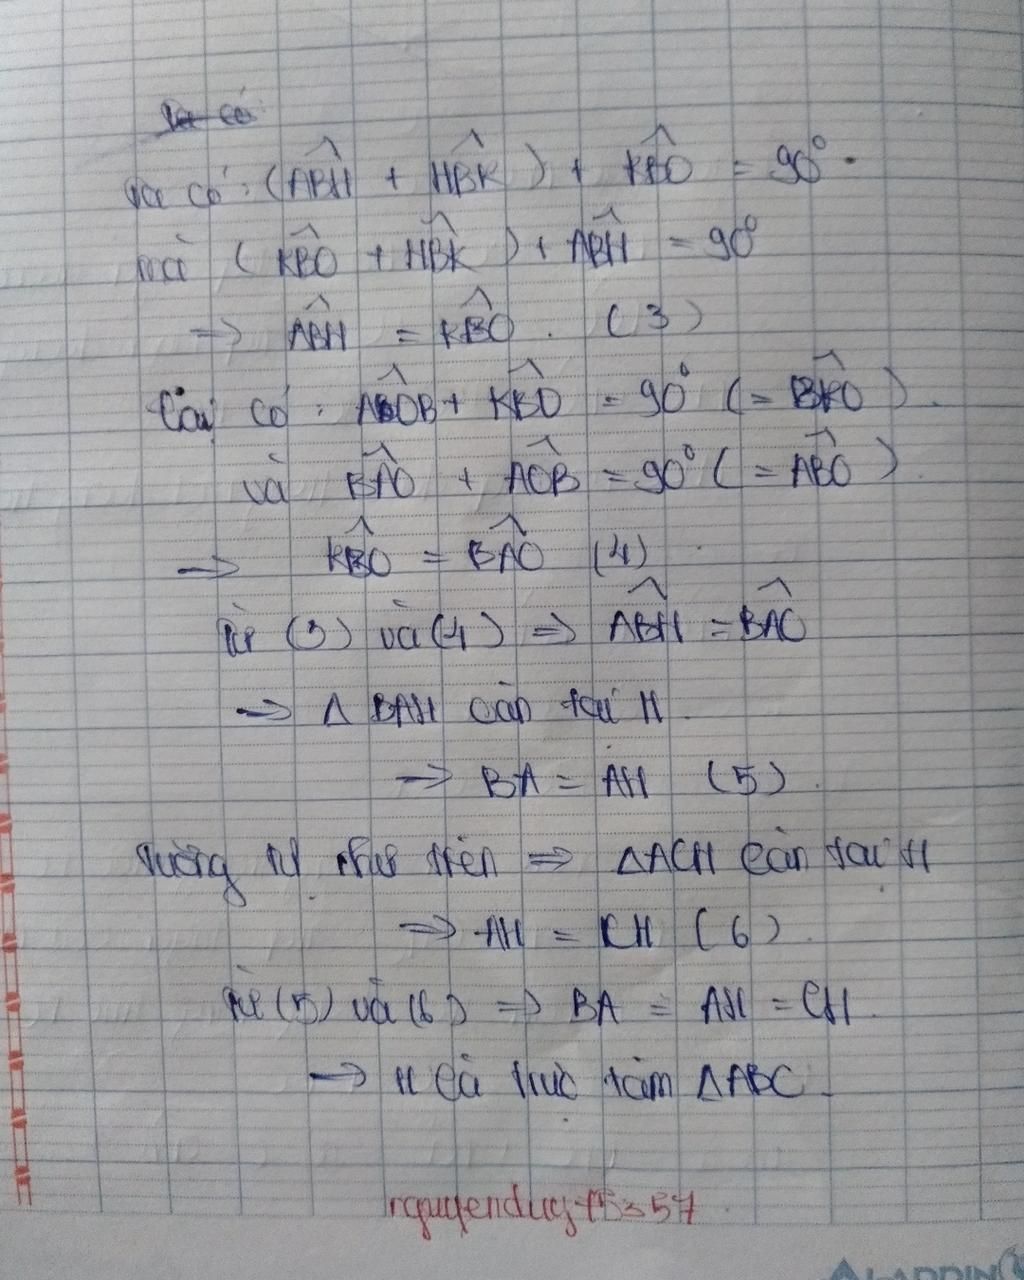 Ta có
Ta có : (ABH + HBK) + KBO = 90° .
mà (KBO + HBK) + ABH = 90°
=> ABH = KBO . (3)
Lại có : AOB + KBO = 90° (= BKO) .
và BAO + AOB = 90° (= ABO) .
=> KBO = BAO (4)
Từ (3) và (4) => ABH = BAO
=> Δ BAH cân tại H .
=> BA = AH (5) .
Tương tự như trên => ΔACH cân tại H
=> AH = CH (6) .
Từ (5) và (6) => BA = AH = CH .
=> H là trực tâm ΔABC .
nguyenduy15357